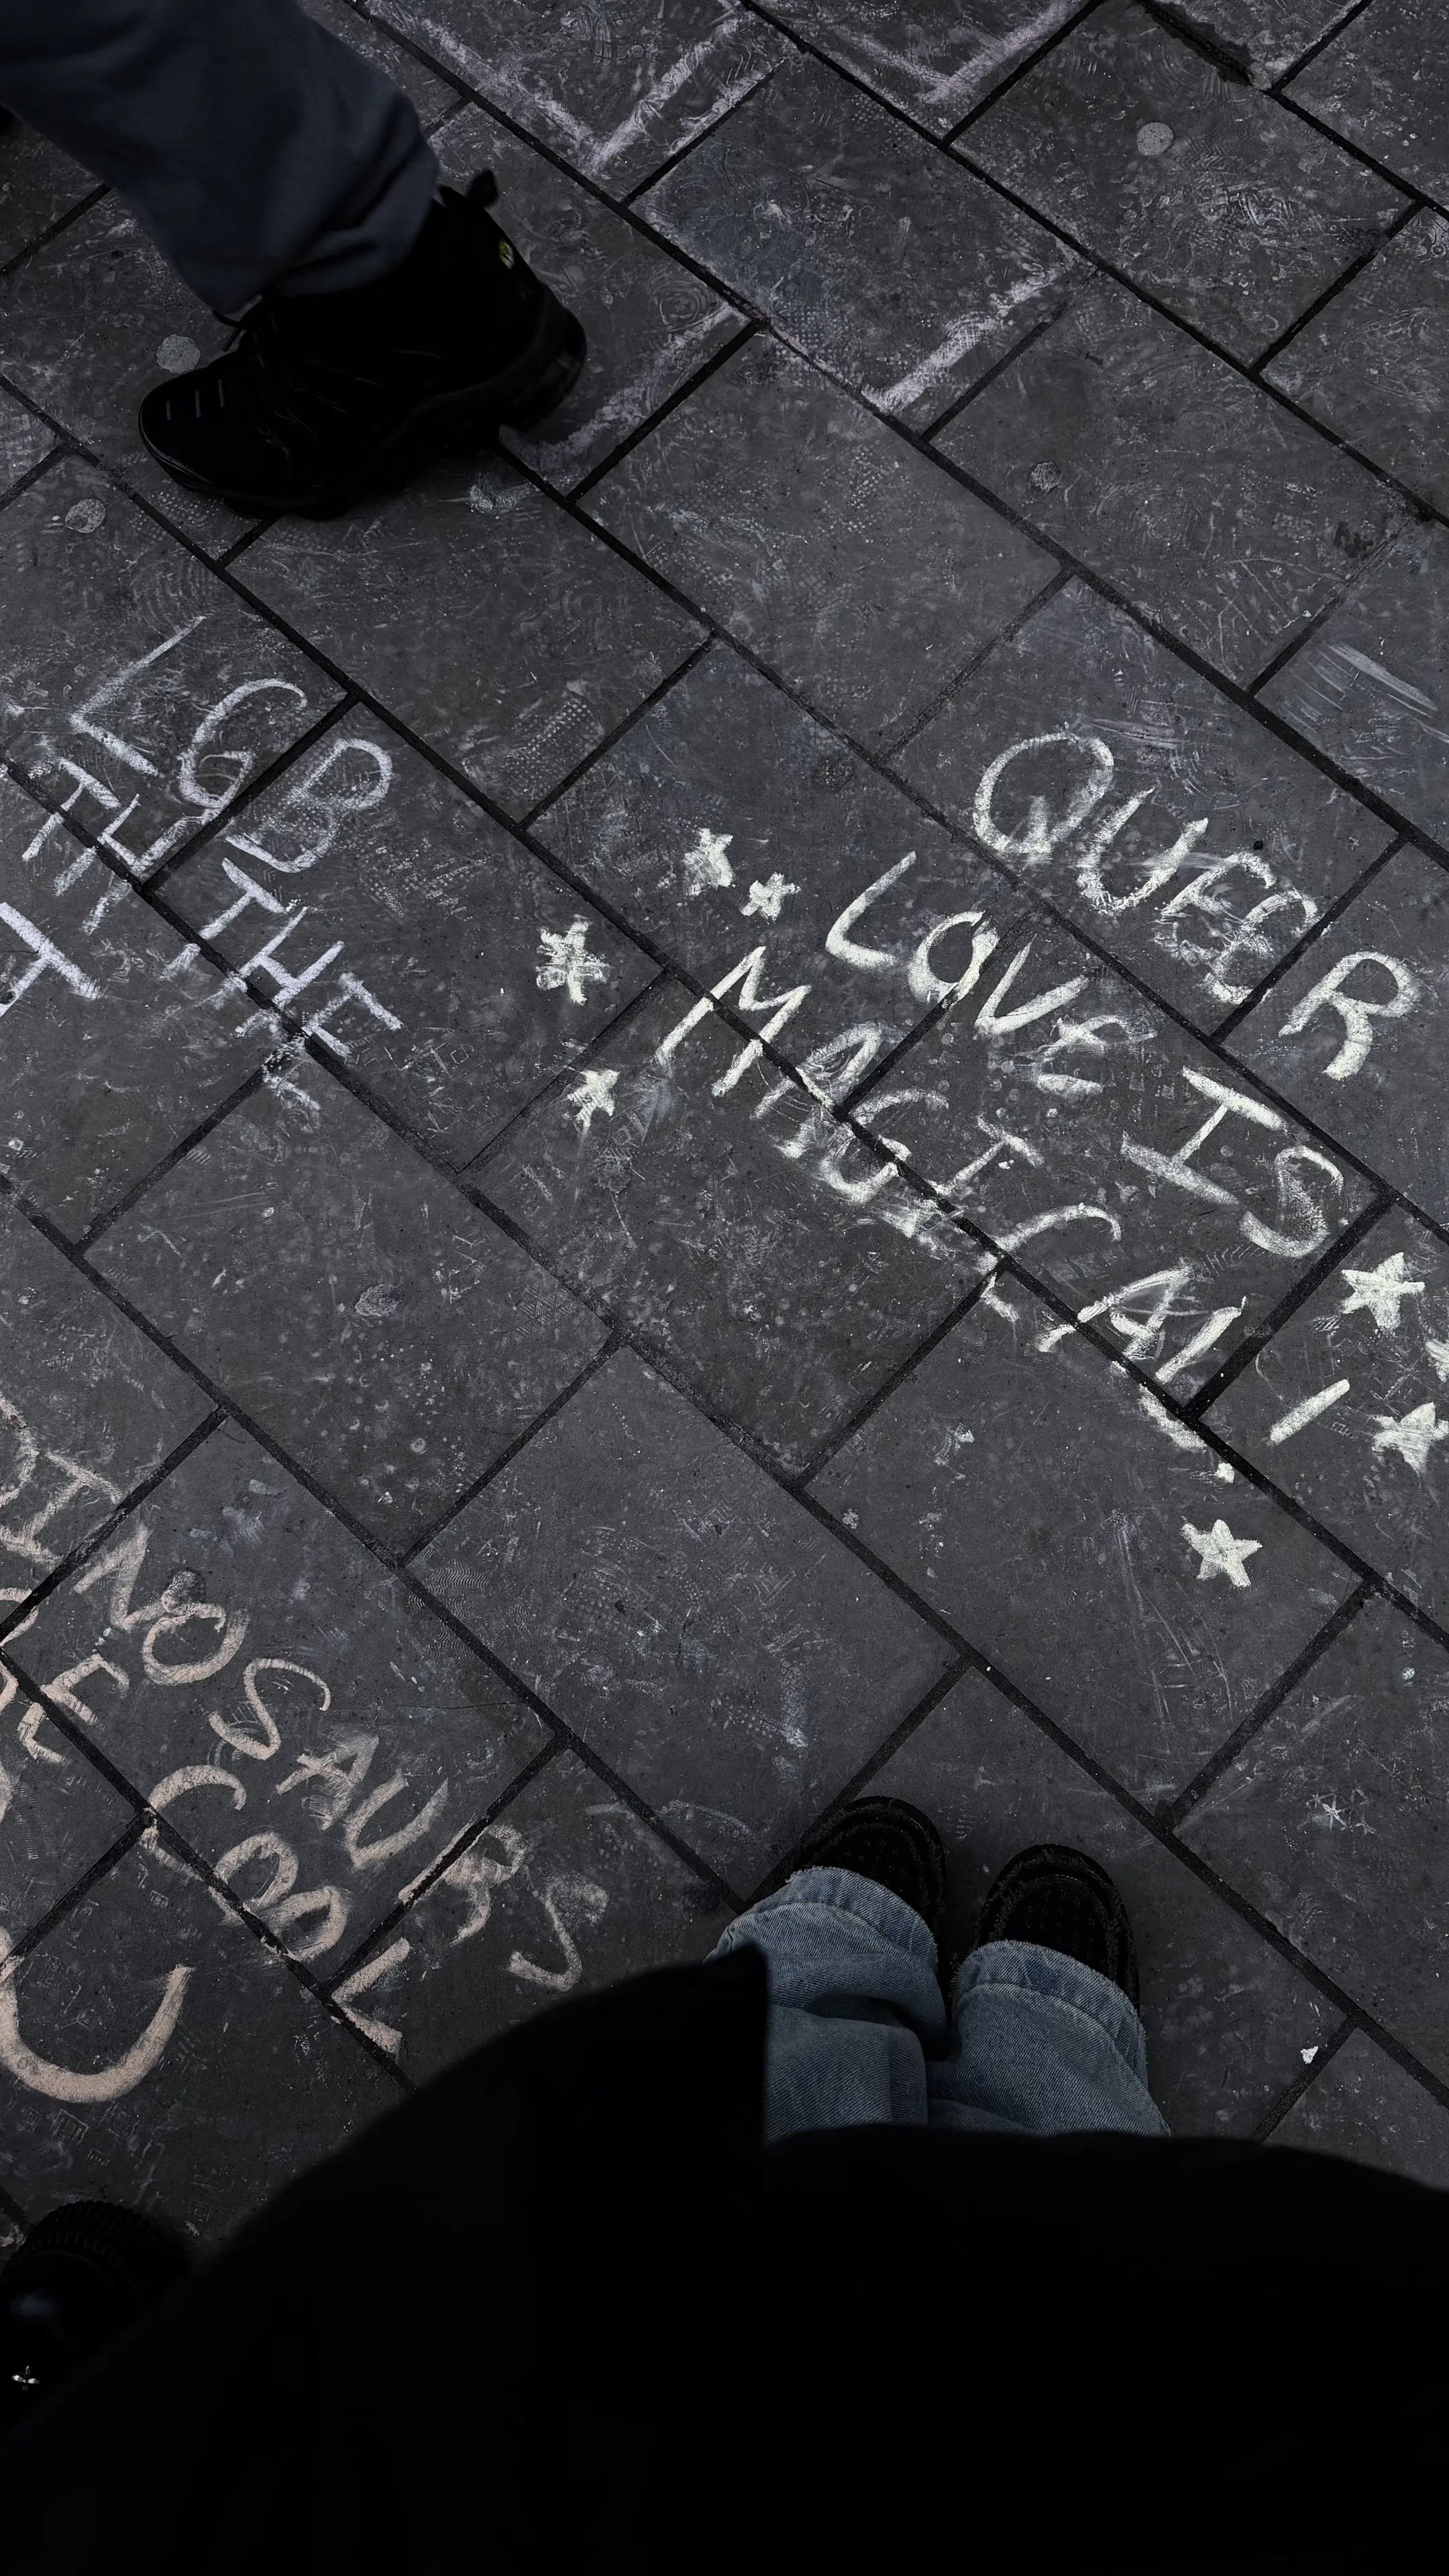 LGB
THE
QUEER
LOVE IS
MAGICAL!
DINOSAURS
COOL